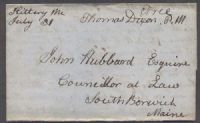 Kittery Me
July 31
Free
Thomas Dixon, P.M
John Hubbard Esquire
Councillor at Law
South Berwick
Maine